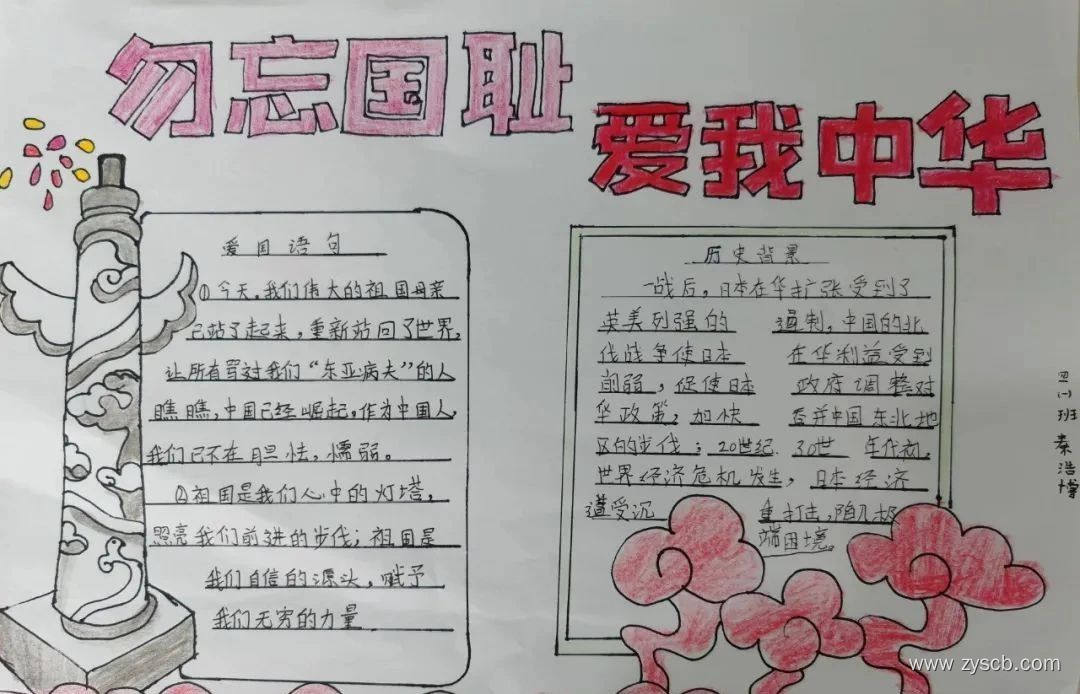 勿忘国耻
爱我中华
爱国语句
①今天,我们伟大的祖国母亲
已站了起来,重新站回了世界,
让所有骂过我们“东亚病夫”的人
瞧瞧,中国已经崛起,作为中国人,
我们已不在胆怯,懦弱。
②祖国是我们心中的灯塔,
照亮我们前进的步伐;祖国是
我们自信的源头,赋予
我们无穷的力量
历史背景
一战后,日本在华扩张受到了
英美列强的 遏制,中国的北
伐战争使日本 在华利益受到
削弱,促使日本 政府调整对
华政策,加快 吞并中国东北地
区的步伐;20世纪 30世 年代初,
世界经济危机发生,日本经济
遭受沉 重打击,陷入极
端困境。
四(一)班 秦浩博
www.zyscb.com